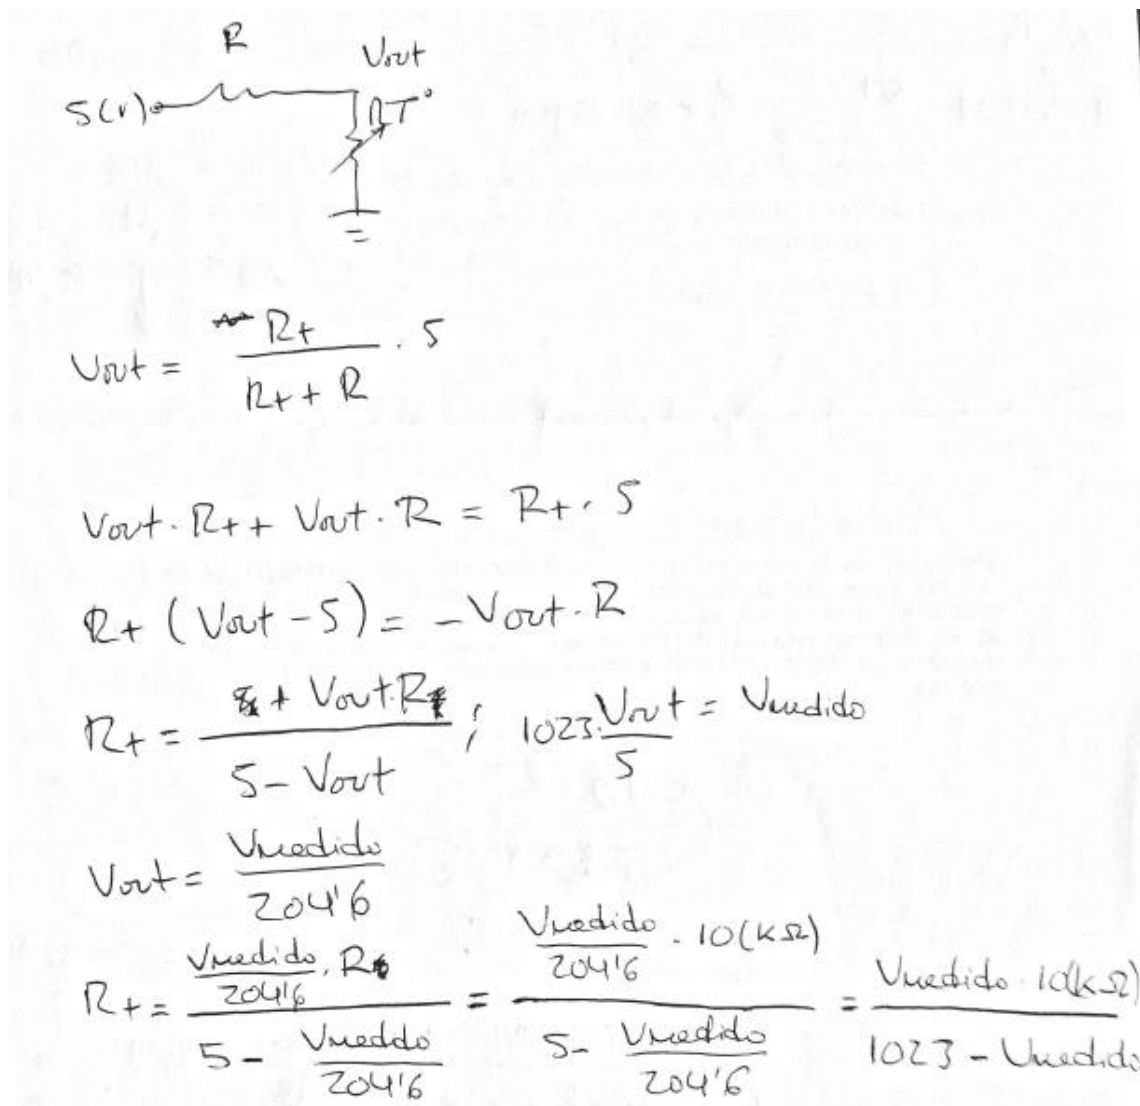 R Vout
5(v) RT°
Vout = Rt / (Rt + R) · 5
Vout · Rt + Vout · R = Rt · 5
Rt (Vout - 5) = - Vout · R
Rt = + Vout · R / (5 - Vout) ; 1023 · Vout / 5 = Vmedido
Vout = Vmedido / 204'6
Rt = (Vmedido / 204'6 · R) / (5 - Vmeddo / 204'6) = (Vmedido / 204'6 · 10(KΩ)) / (5 - Vmedido / 204'6) = Vmedido · 10(kΩ) / (1023 - Vmedido)